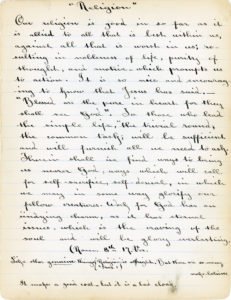 "Religion"
Our religion is good in so far as it
is allied to all that is best within us,
against all that is worst in us; re-
sulting in nobleness of life, purity of
thought, and justice which prompts us
to action. It is so nice and encourag-
ing to know that Jesus has said,—
"Blessed are the pure in heart for they
shall see God". To those who lead
the simple life, "the trivial round,
the common task, will be sufficient
and will furnish all we need to ask.
There shall we find ways to bring
us nearer God; ways which will call
for self-sacrifice, self denial, in which
we may in a way glorify our
fellow creatures. Work for God has an
undying charm, as it has eternal
issue, which is the craving of the
soul and will be glory everlasting.
(Rom. 8th 17 V.)
Like other genuine things Religion is
But there are so many
makes a good coat, but it is a bad cloak.